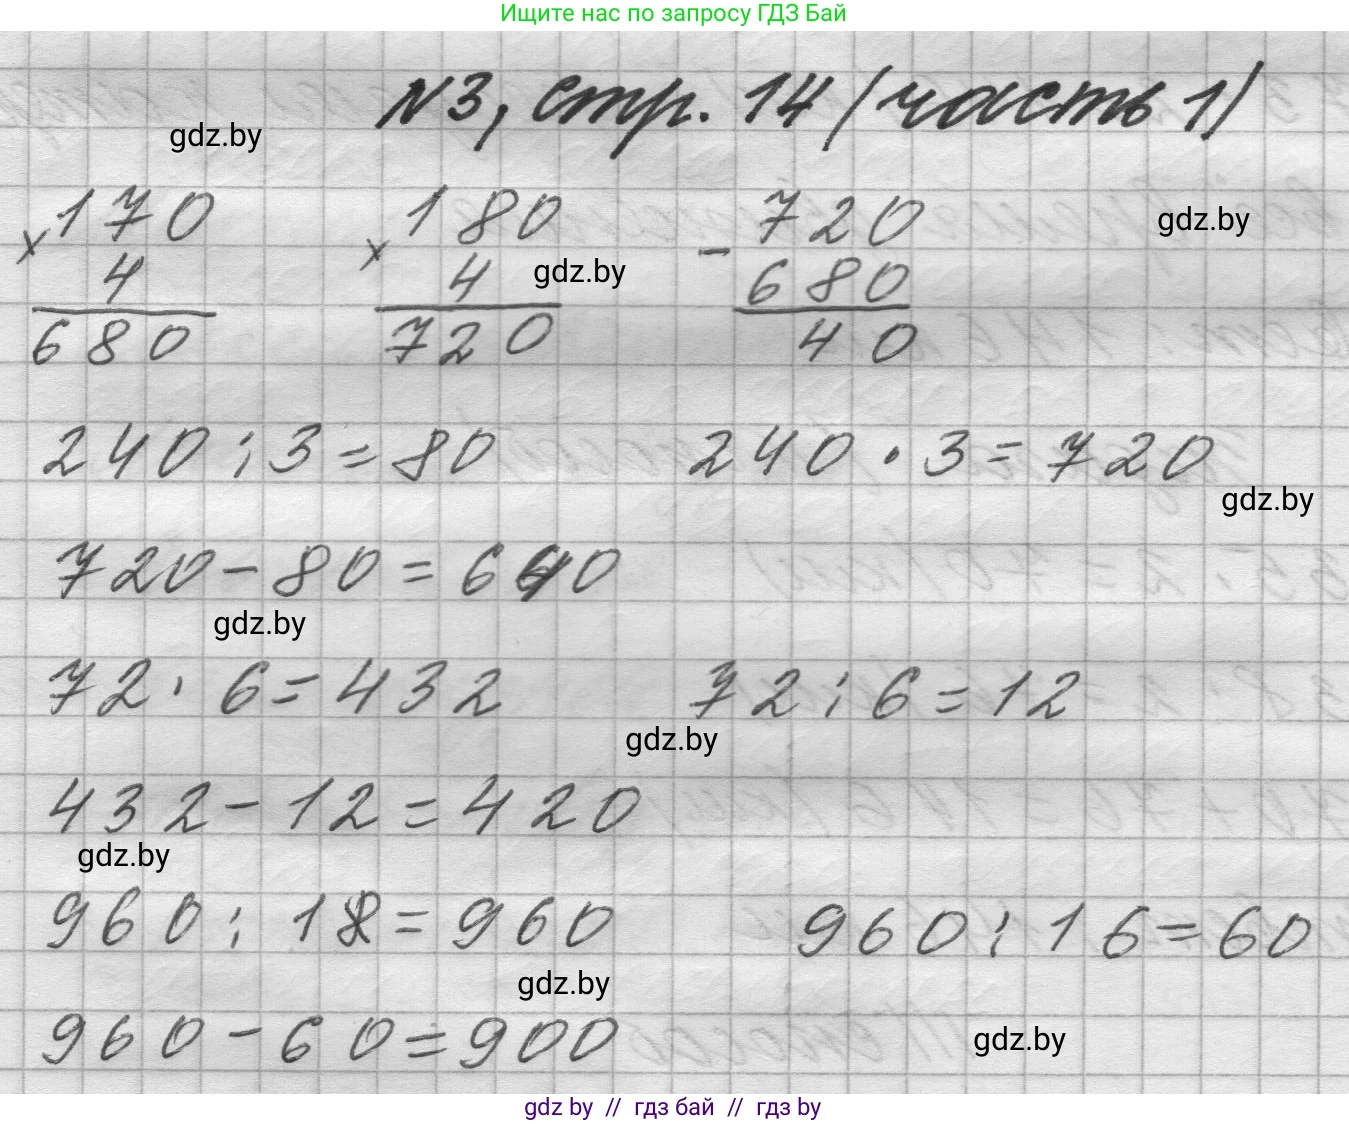 Ищите нас по запросу ГДЗ Бай
№3, стр. 14 (часть 1)
gdz.by
170 180 720
× × - gdz.by
4 4 gdz.by 680
680 720 40
240 : 3 = 80 240 · 3 = 720
gdz.by
720 - 80 = 640
gdz.by
72 · 6 = 432 72 : 6 = 12
gdz.by
432 - 12 = 420
gdz.by
960 : 1 = 960 960 : 16 = 60
gdz.by
960 - 60 = 900
gdz.by
gdz by // гдз бай // гдз by